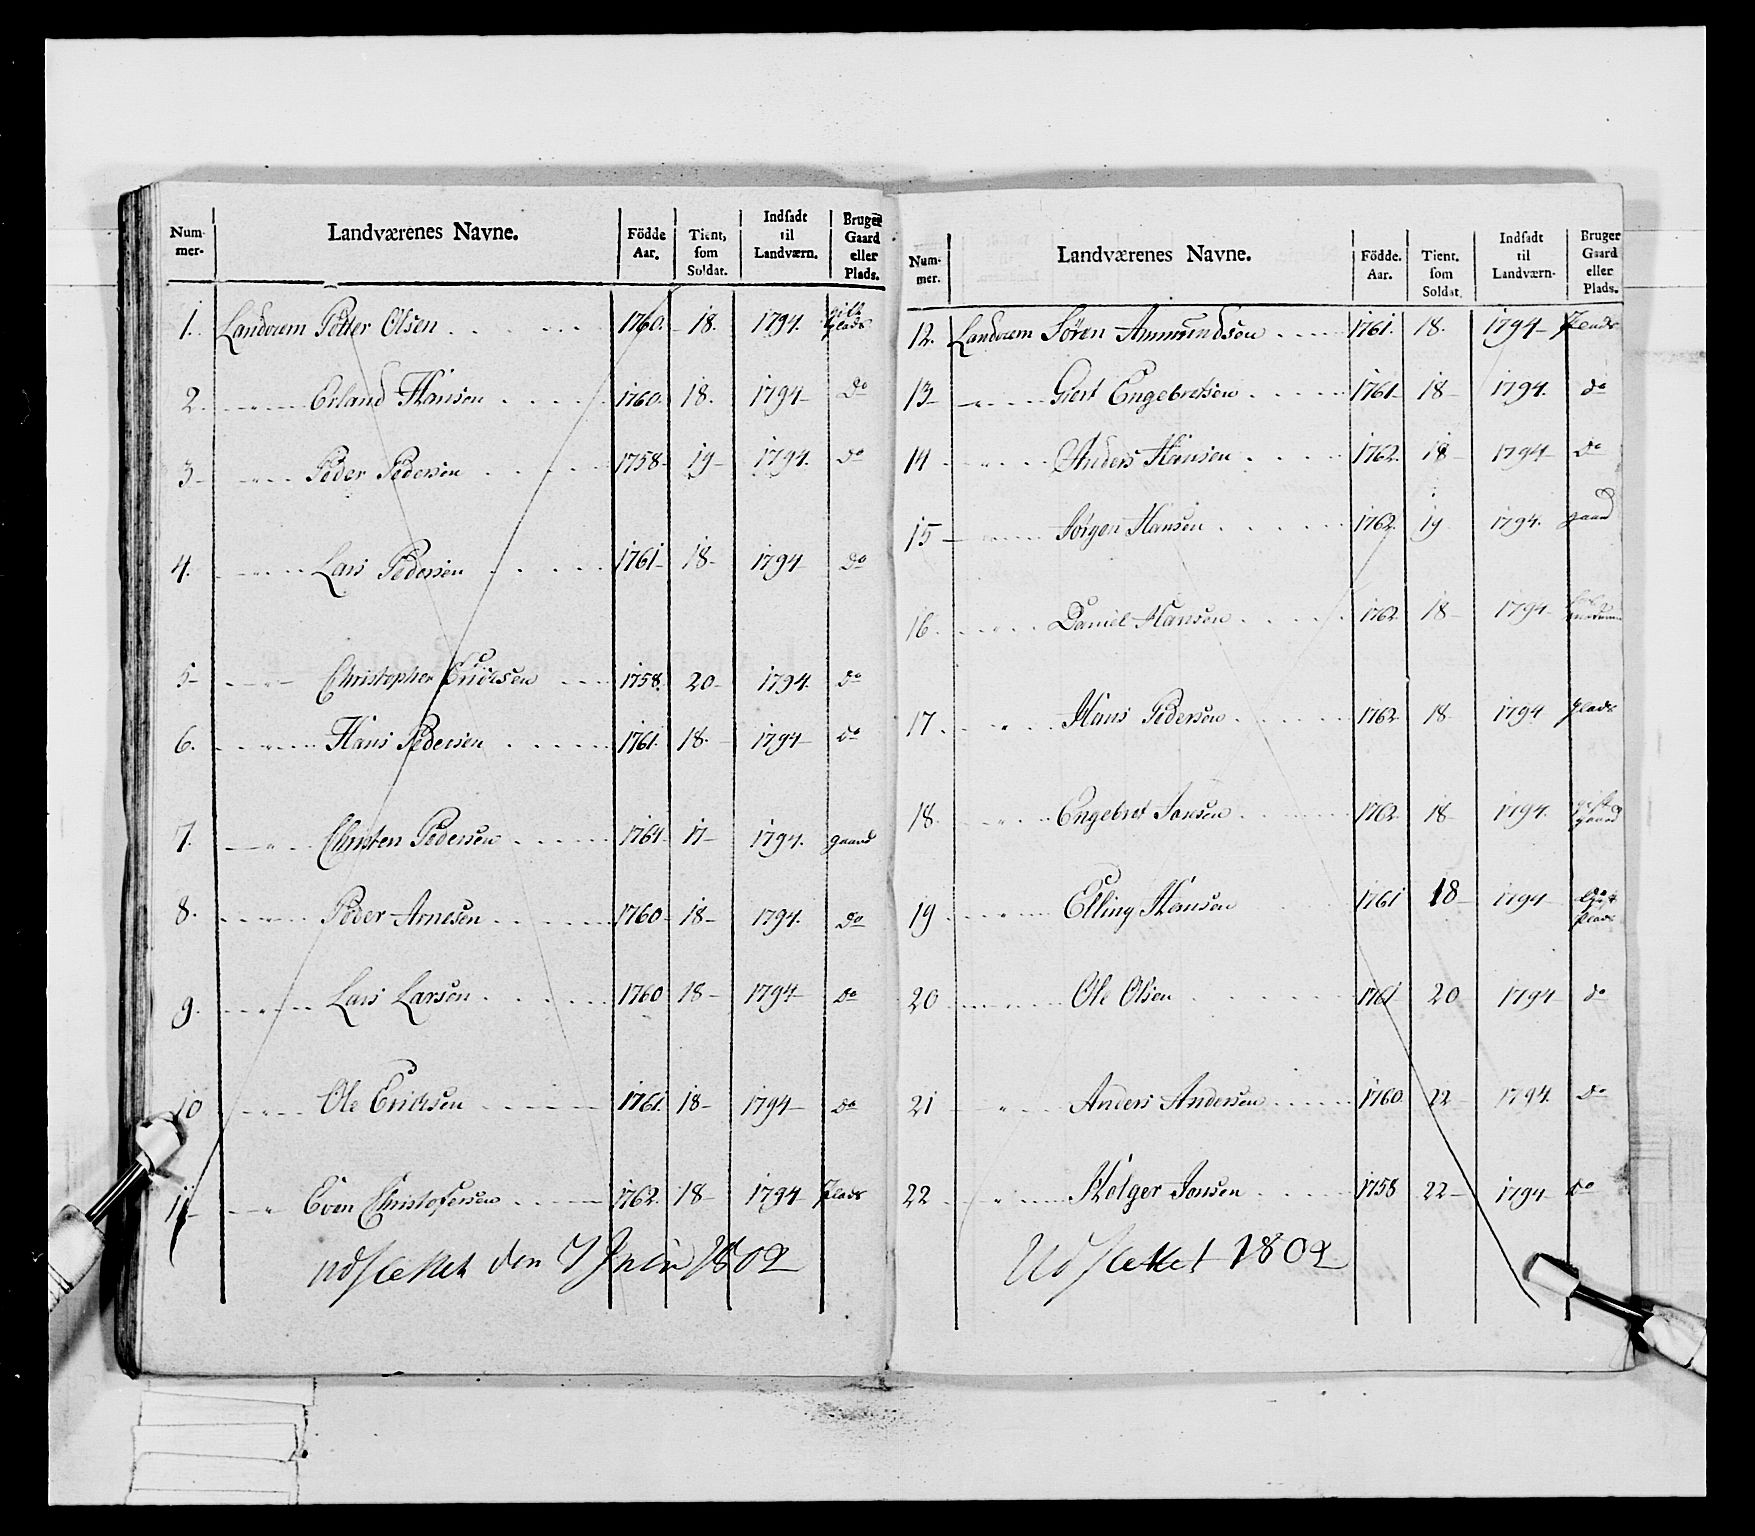 Num-
mer-
Landværenes Navne.
Födde
Aar.
Tient,
som
Soldat.
Indsadt
til
Landværn.
Bruger
Gaard
eller
Plads.
1. Landvern Petter Olsen 1760. 18. 1794. Plads
2. Erland Hansen 1760. 18. 1794 Do
3 Peder Pedersen 1758 19 1794. Do
4. Lars Pedersen 1761 18 1794 Do
5 Christopher Ericksen 1758. 20 1794. Do
6. Hans Pedersen 1761. 18. 1794 Do
7. Christen Pedersen 1764 17 1794. gaard
8. Peder Arnesen 1760 18 1794. Do
9. Lars Larsen 1760 18 1794 Do
10 Ole Ericksen 1761. 18 1794 Do
11 Even Christofersen 1762. 18 1794 Plads
udslettet den 7 Juni 1802
Num-
mer.
Landværenes Navne.
Födde.
Aar.
Tient.
som
Soldat.
Indsadt
til
Landværn-
Bruger
Gaard
eller
Plads.
12. Landvern Sören Ammundsen 1761. 18. 1794 Plads
13 Giert Engebretsen 1761 18 1794. do
14 Anders Hansen 1762. 18 1794 do
15 Jörgen Hansen 1762. 19 1794. gaard
16. Daniel Hansen 1762 18 1794
17. Hans Pedersen 1762 18 1794 plads
18. Engebret Jonsen 1762 18 1794. gaard
19 Elling Hansen 1761 18 1794 plads
20 Ole Olsen 1761 20 1794 do
21 Anders Andersen 1760 22 1794. do
22 Holger Jonsen 1758 22 1794 do
Udslettet 1802